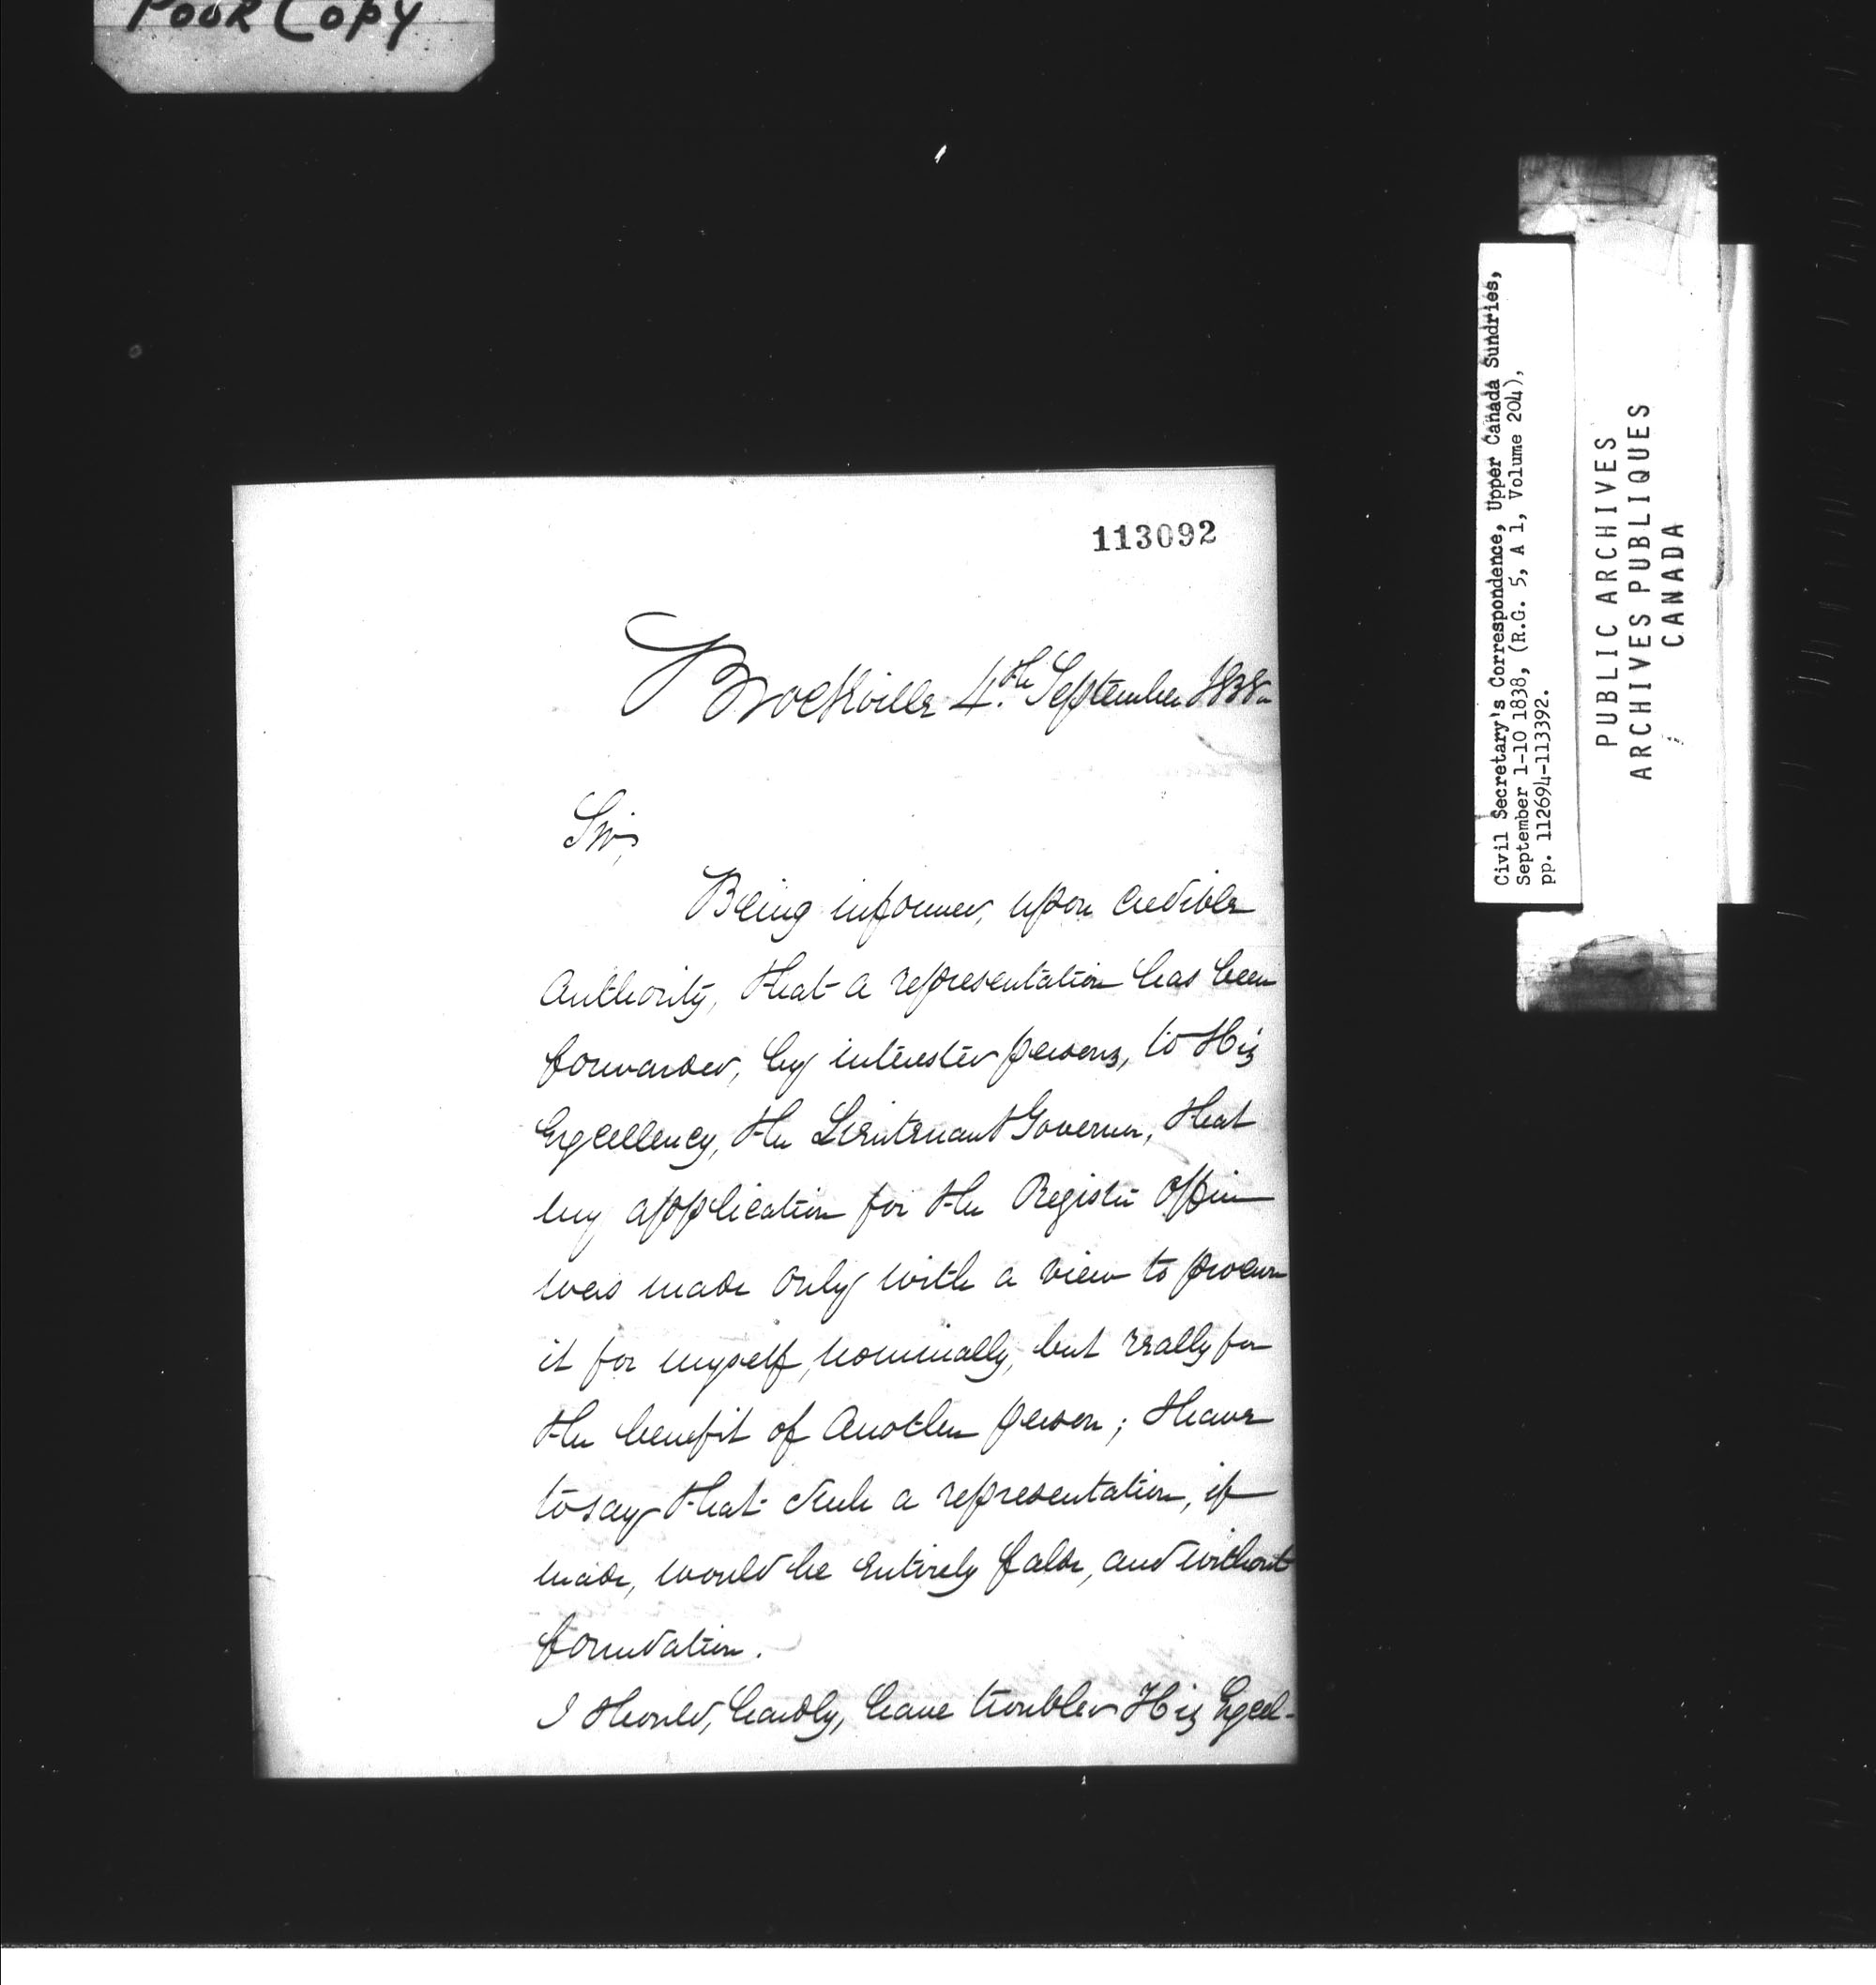 Poor Copy
113092
Brockville 4.th September 1838.
Sir,
Being informed, upon credible
authority, that a representation has been
forwarded, by interested persons, to His
Excellency, the Lieutenant Governor, that
my application for the Register Office
was made only with a view to procure
it for myself, nominally, but really for
the benefit of another person; I have
to say that such a representation, if
made, would be entirely false, and without
foundation.
I should, hardly, have troubled His Excel-
Civil Secretary's Correspondence, Upper Canada Sundries,
September 1-10 1838, (R.G. 5, A 1, Volume 204),
pp. 112694-113392.
PUBLIC ARCHIVES
ARCHIVES PUBLIQUES
CANADA